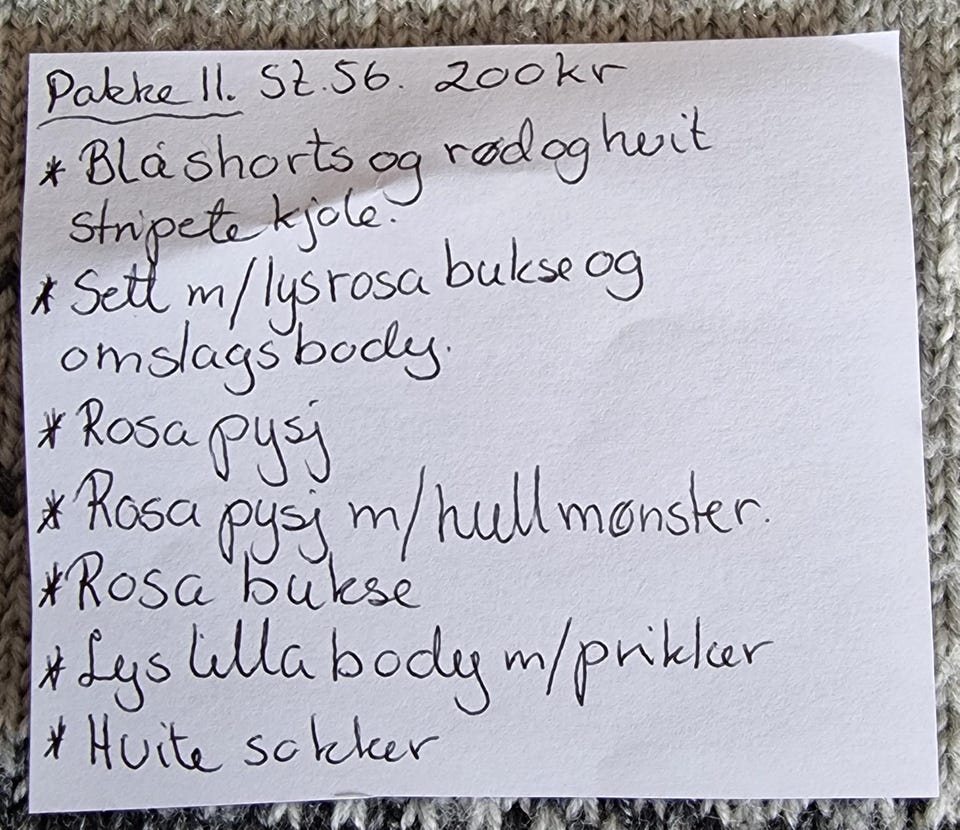 Pakke 11. St. 56. 200kr
* Blå shorts og rød og hvit
stripete kjole.
* Sett m/lysrosa bukse og
omslagsbody.
* Rosa pysj
* Rosa pysj m/hullmønster.
* Rosa bukse
* Lys lilla body m/prikker
* Hvite sokker